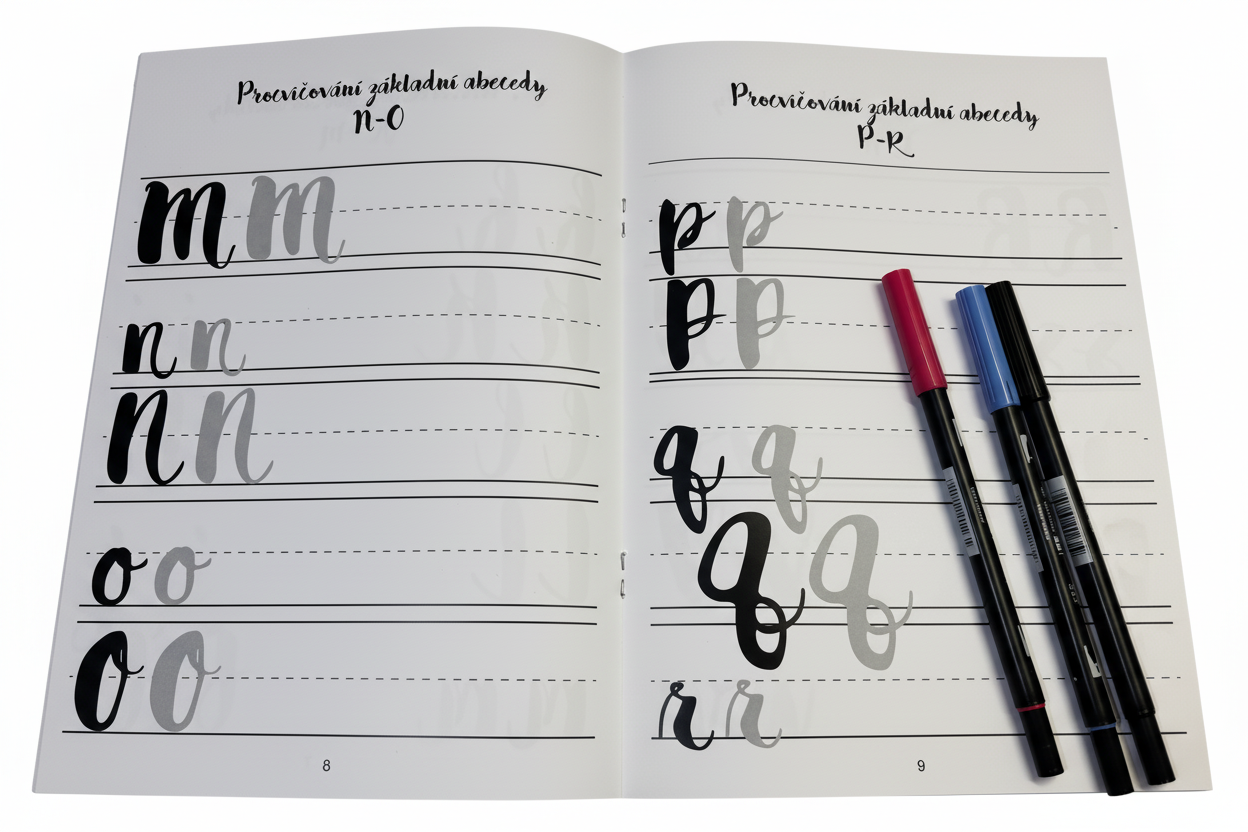 Procvičování základní abecedy
N-O
m m
n n
n n
o o
O O
8
Procvičování základní abecedy
P-R
p p
P P
q q
Q Q
r r
9